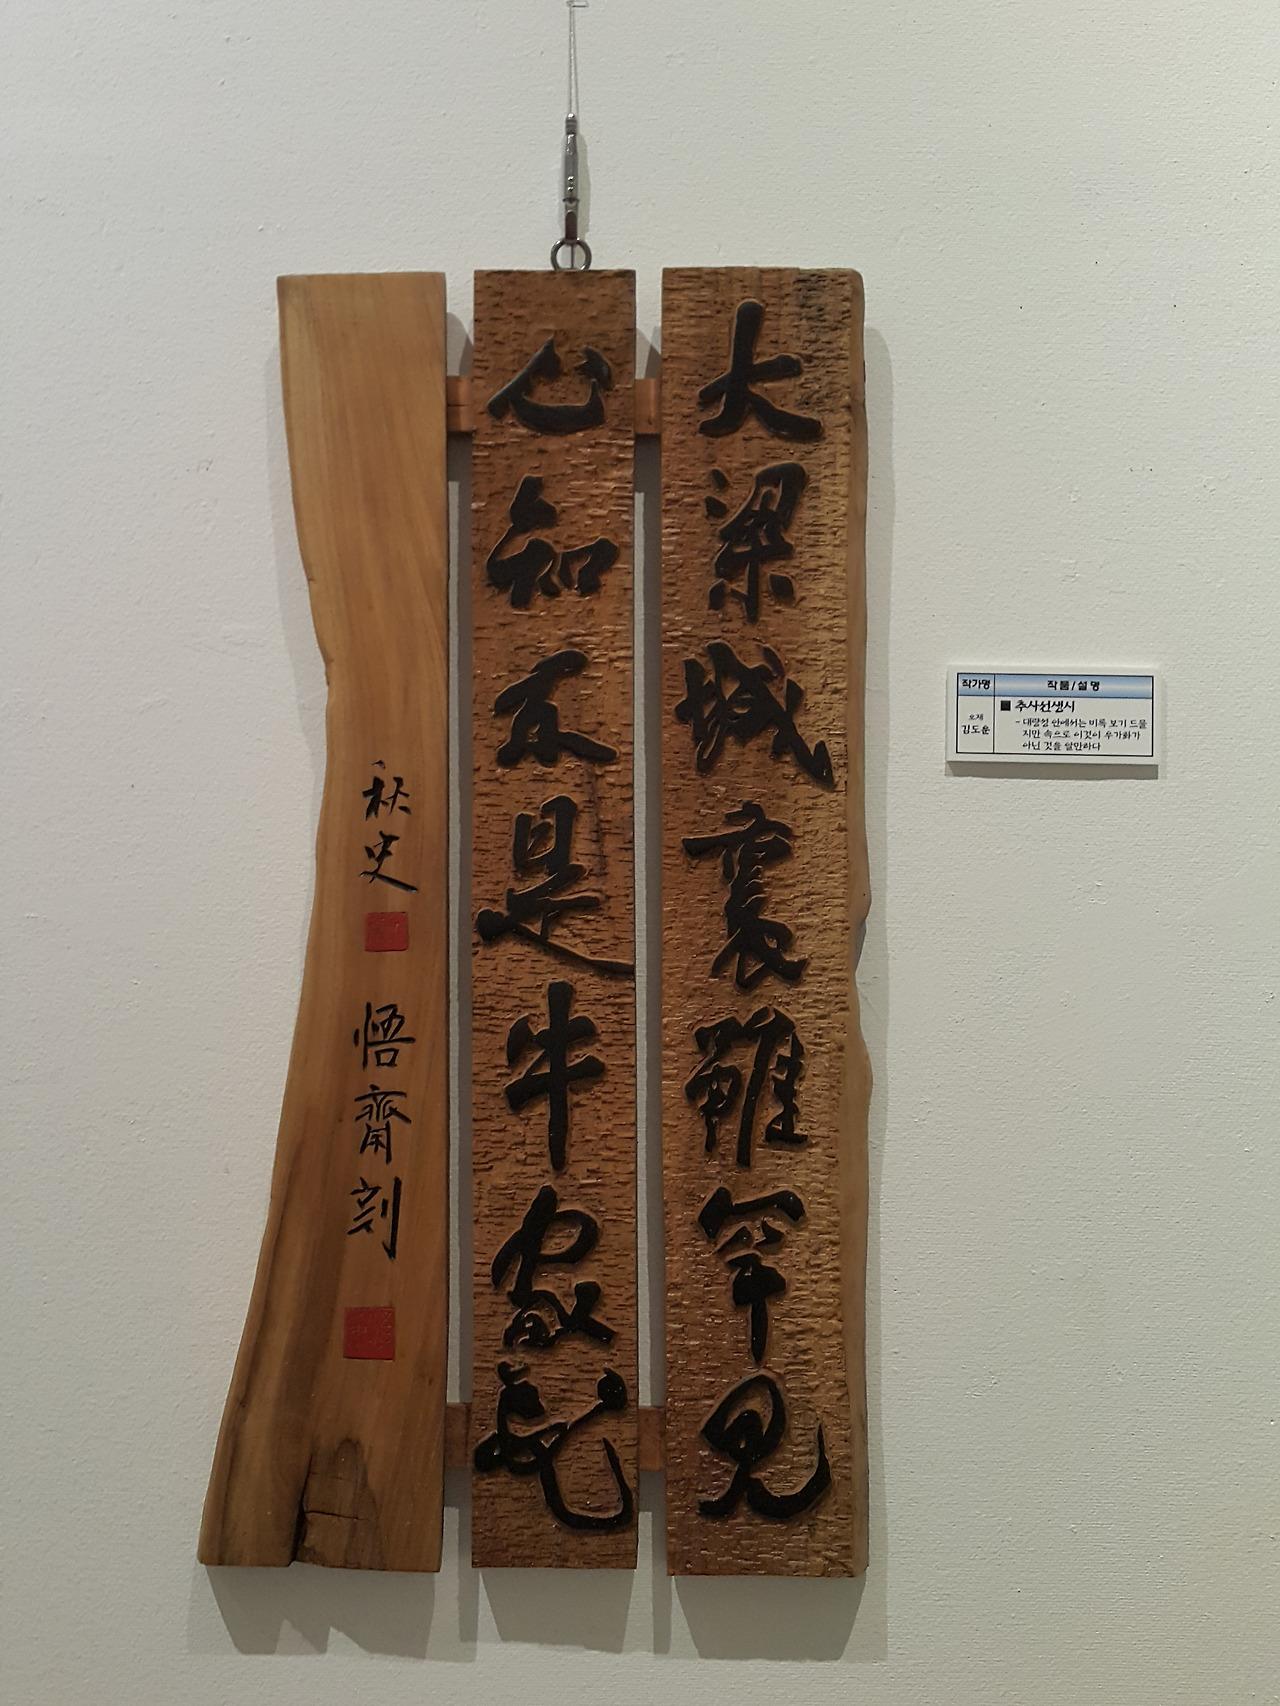 大梁城裏雖罕見
心知不是牛家花
秋史
悟齋刻
작가명
작품/설명
오재
김도운
■ 추사선생시
- 대량성 안에서는 비록 보기 드물
지만 속으로 이것이 우가화가
아닌 것을 알만하다